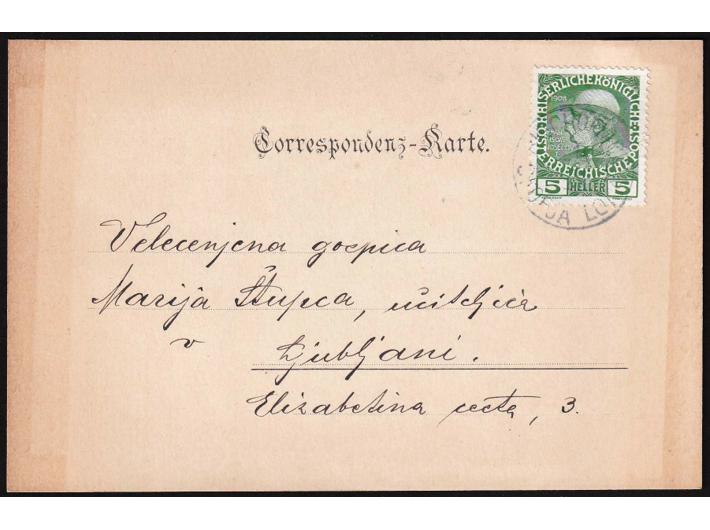 Correspondenz-Karte.
KAISERLICHE KÖNIGLICHE
ÖSTERREICHISCHE POST
1908
5 HELLER 5
Velecenjena gospica
Marija Štupca, učiteljica
v Ljubljani.
Elizabetina cesta, 3.